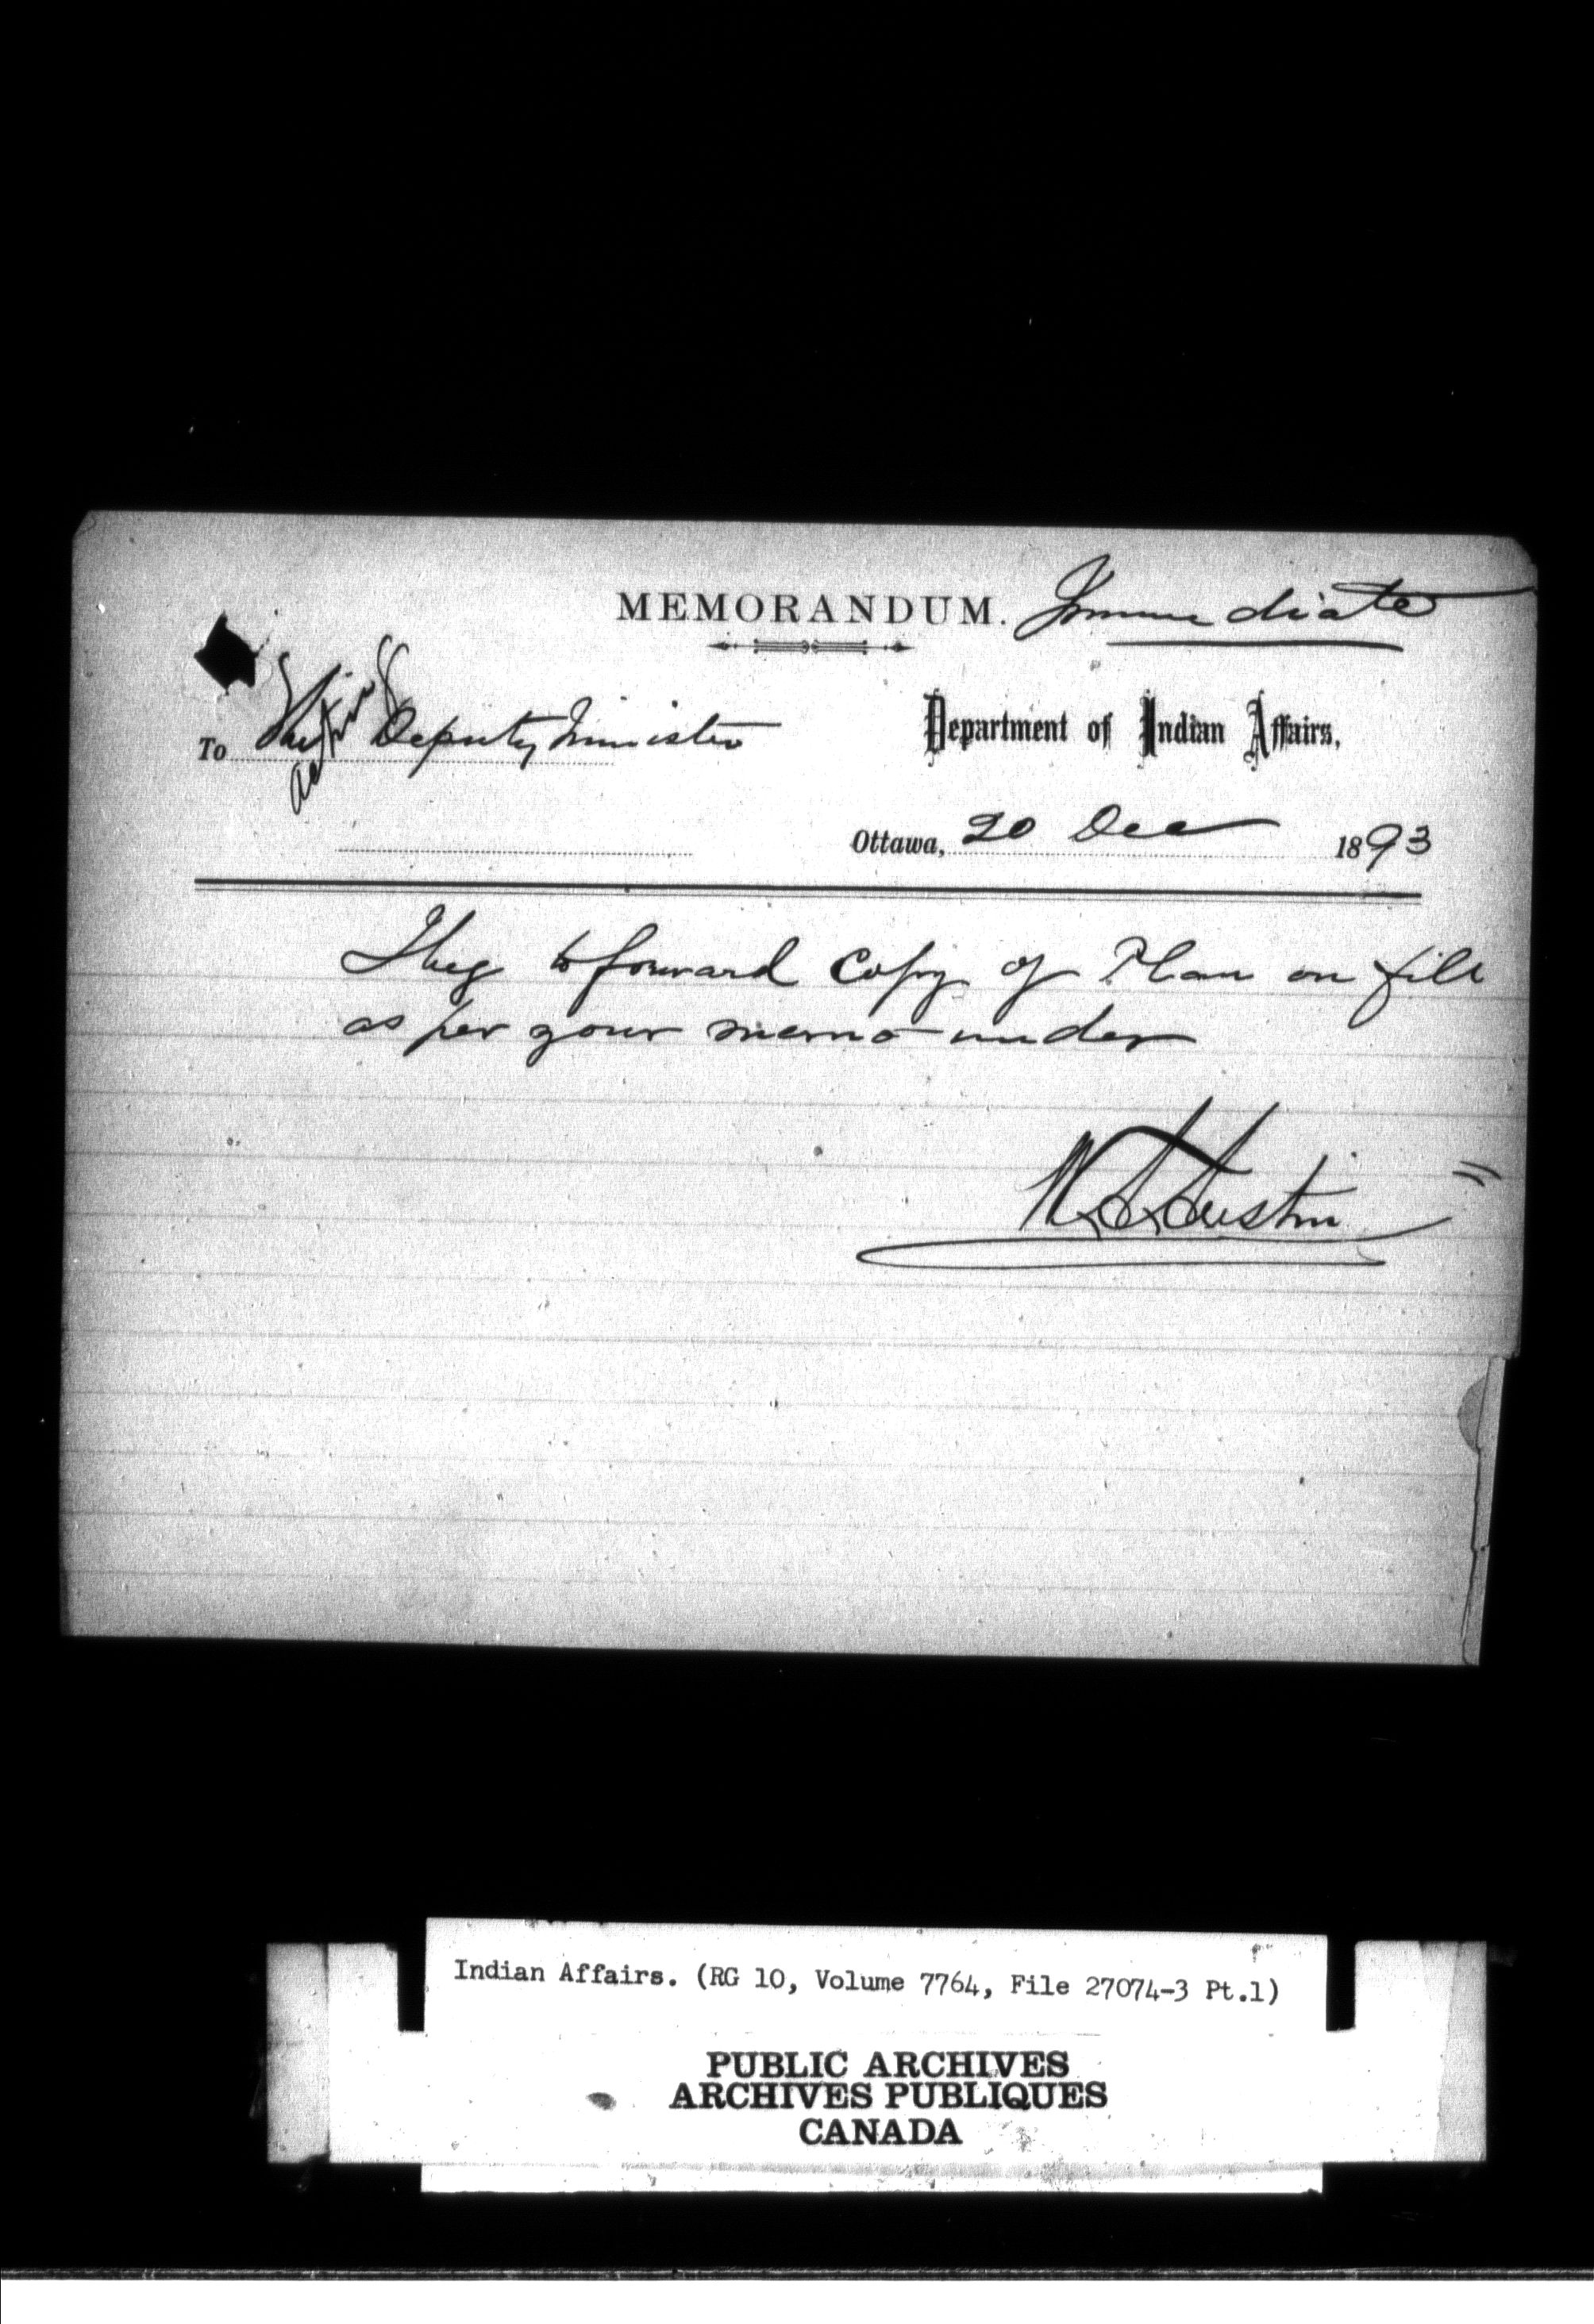 MEMORANDUM. Immediate
To The Acting Deputy Minister
Department of Indian Affairs,
Ottawa, 20 Dec 1893
I beg to forward Copy of Plan on file
as per your memo under
W A Austin
Indian Affairs. (RG 10, Volume 7764, File 27074-3 Pt.1)
PUBLIC ARCHIVES
ARCHIVES PUBLIQUES
CANADA